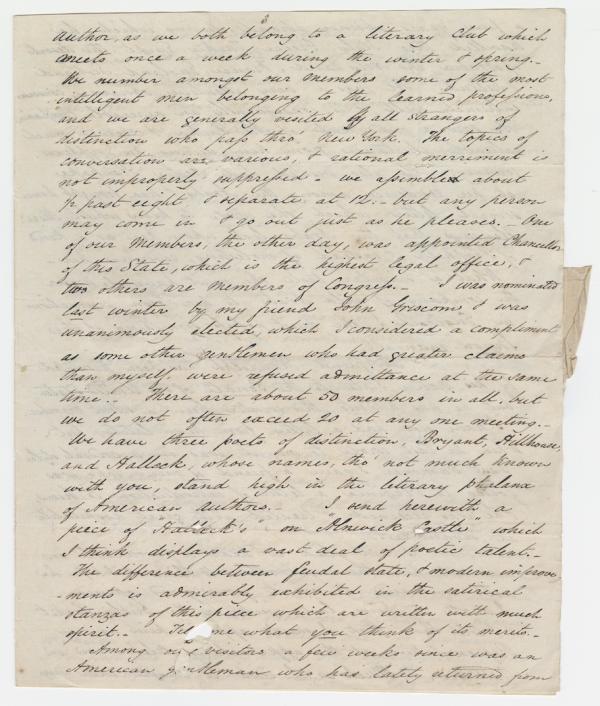 3
author, as we both belong to a literary club which
meets once a week during the winter & spring.-
We number amongst our members some of the most
intelligent men belonging to the learned professions,
and we are generally visited by all strangers of
distinction who pass thro' New York. The topics of
conversation are various, & rational merriment is
not improperly suppressed - we assemble about
½ past eight & separate at 12. - but any person
may come in & go out just as he pleases. - One
of our Members, the other day, was appointed Chancellor
of this State, which is the highest legal office, &
two others are members of Congress. - I was nominated
last winter by my friend John Griscom & was
unanimously elected, which I considered a compliment
as some other gentlemen who had greater claims
than myself were refused admittance at the same
time. - There are about 50 members in all, but
we do not often exceed 20 at any one meeting. -
We have three poets of distinction, Bryant, Hillhouse,
and Halleck, whose names, tho' not much known
with you, stand high in the literary phalanx
of American authors. - I send herewith a
piece of "Halleck's" on "Alnwick Castle" which
I think displays a vast deal of poetic talent. -
The difference between feudal state, & modern improve
-ments is admirably exhibited in the satirical
stanzas of this piece which are written with much
spirit. - Tell me what you think of its merits. -
Among our visitors a few weeks since was an
American gentleman who has lately returned from